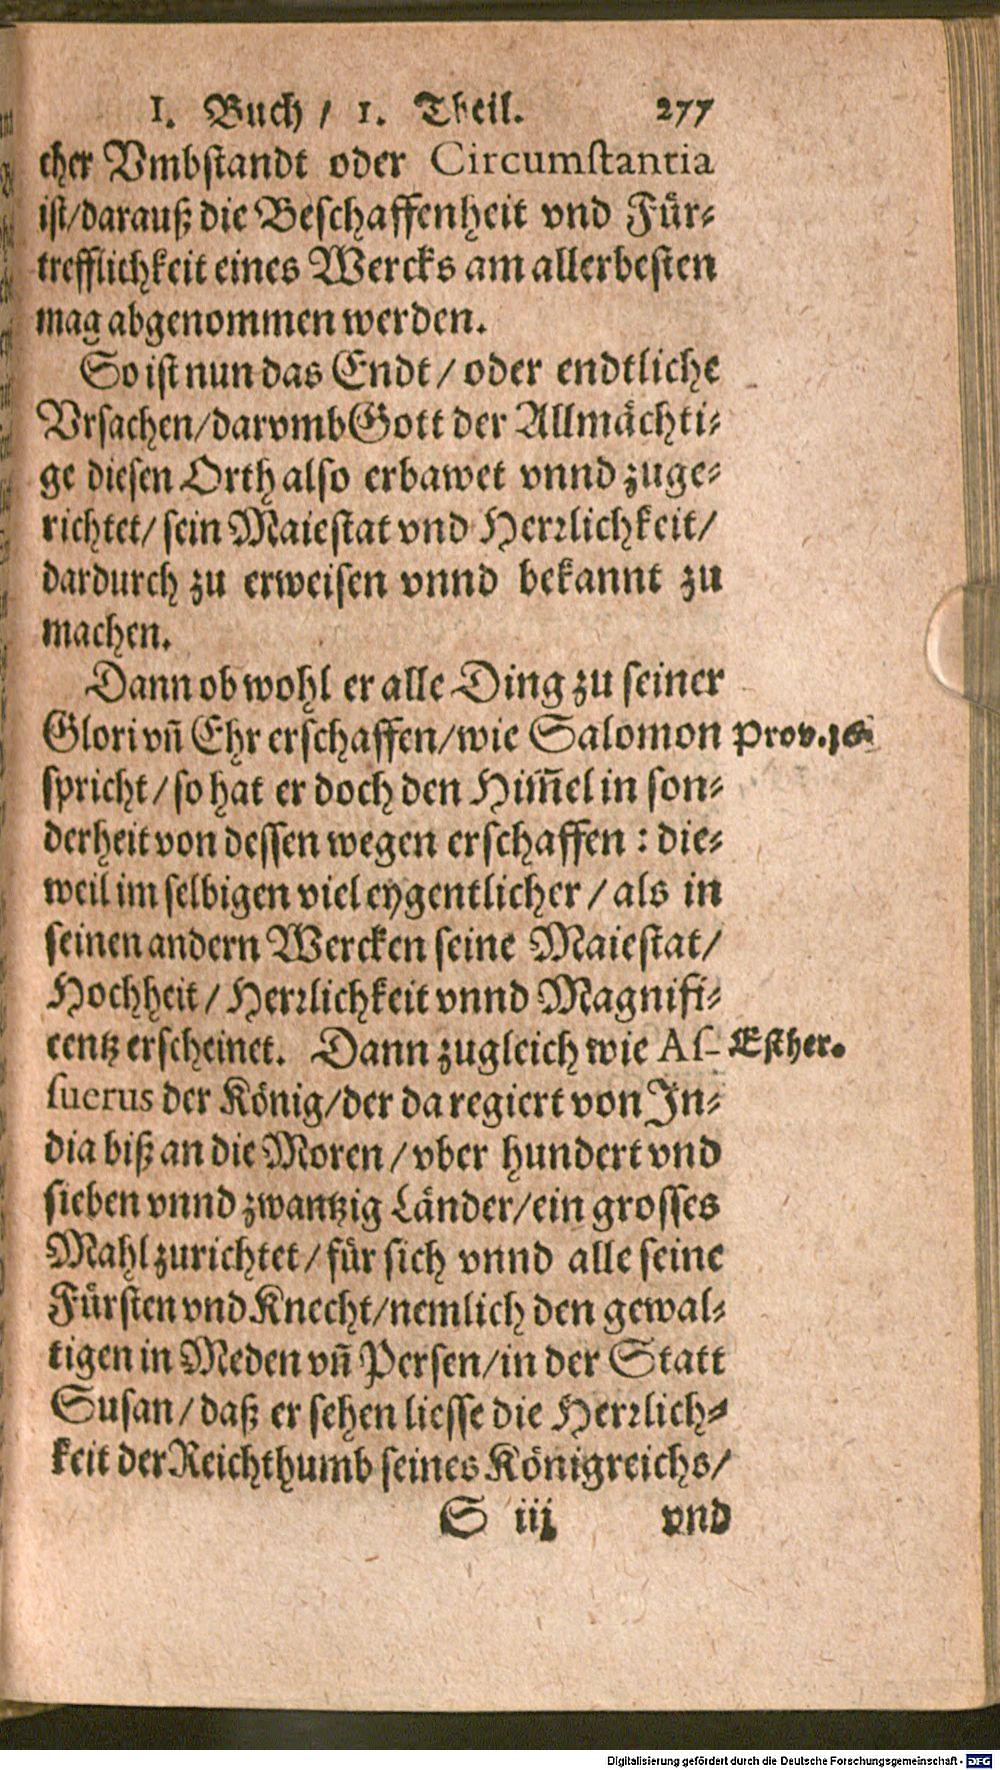 I. Buch / 1. Theil. 277
cher Vmbstandt oder Circumstantia
ist/darauß die Beschaffenheit vnd Für-
trefflichkeit eines Wercks am allerbesten
mag abgenommen werden.
So ist nun das Endt / oder endtliche
Vrsachen/darvmb Gott der Allmächti-
ge diesen Orth also erbawet vnnd zuge-
richtet/ sein Maiestat vnd Herrlichkeit/
dardurch zu erweisen vnnd bekannt zu
machen.
Dann ob wohl er alle Ding zu seiner
Glori vñ Ehr erschaffen/wie Salomon Prov. 16.
spricht / so hat er doch den Him̃el in son-
derheit von dessen wegen erschaffen : die-
weil im selbigen viel eygentlicher / als in
seinen andern Wercken seine Maiestat/
Hochheit / Herrlichkeit vnnd Magnifi-
centz erscheinet. Dann zugleich wie As- Esther.
suerus der König/der da regiert von In-
dia biß an die Moren / vber hundert vnd
sieben vnnd zwantzig Länder/ein grosses
Mahl zurichtet / für sich vnnd alle seine
Fürsten vnd Knecht/nemlich den gewal-
tigen in Meden vñ Persen/in der Statt
Susan / daß er sehen liesse die Herrlich-
keit der Reichthumb seines Königreichs/
S iij vnd
Digitalisierung gefördert durch die Deutsche Forschungsgemeinschaft - DFG